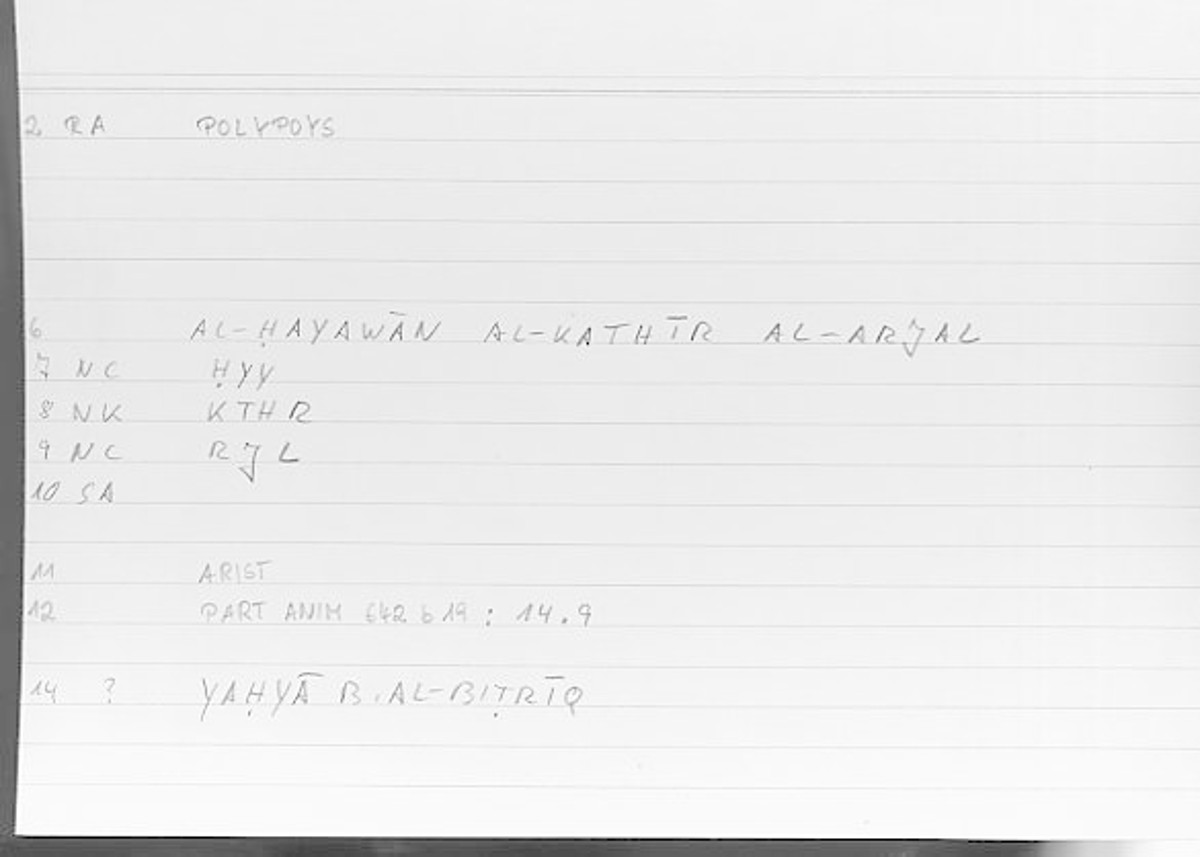 2 RA POLYPOYS
6 AL-ḤAYAWĀN AL-KATHĪR AL-ARJAL
7 NC ḤYY
8 NK KTHR
9 NC RJL
10 SA
11 ARIST
12 PART ANIM 642 b 19 : 14.9
14 ? YAḤYĀ B. AL-BIṬRĪQ